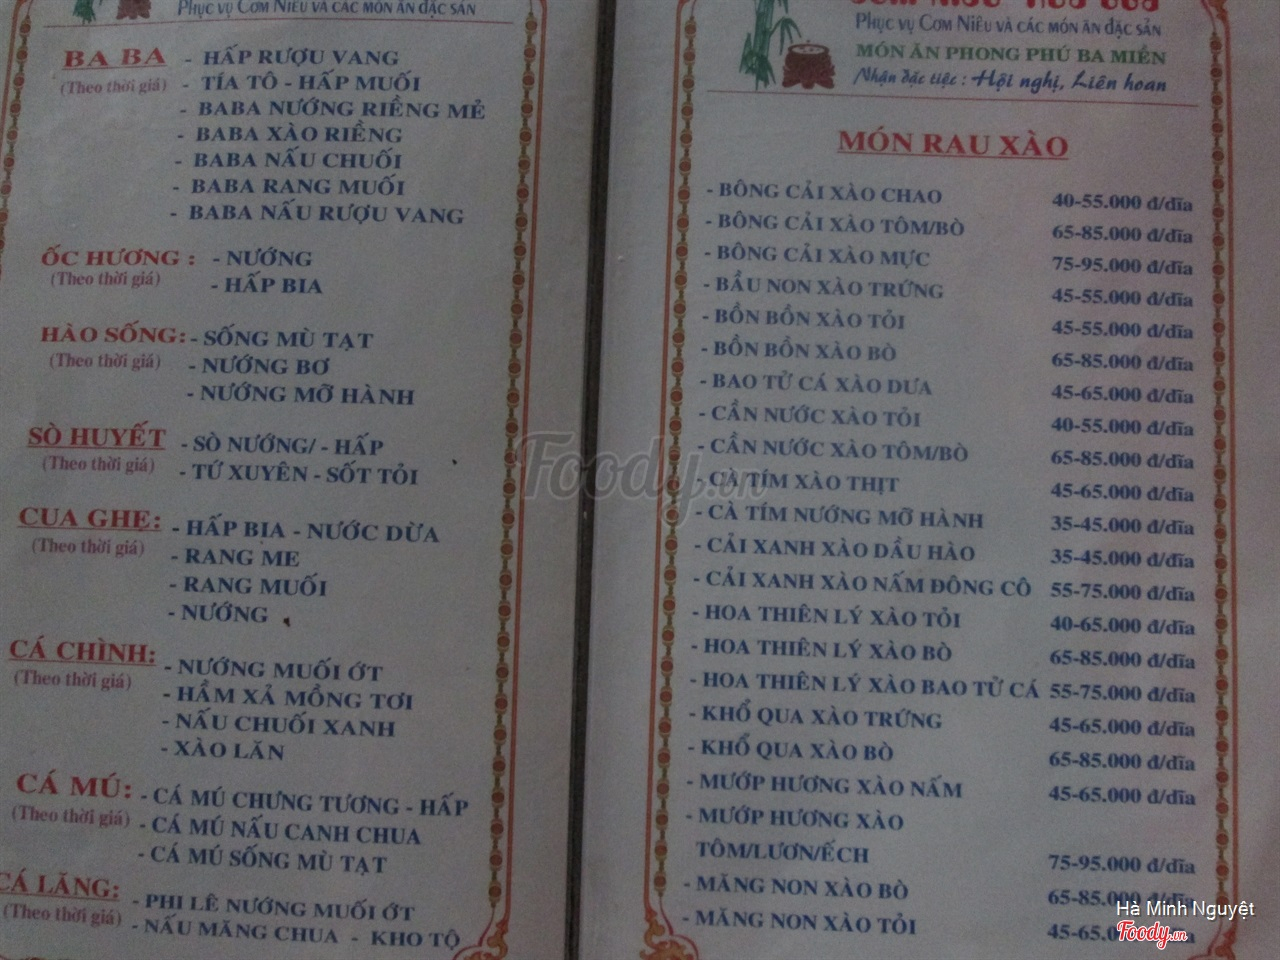 PHỤC VỤ CƠM NIÊU VÀ CÁC MÓN ĂN ĐẶC SẢN
BA BA - HẤP RƯỢU VANG
(Theo thời giá) - TÍA TÔ - HẤP MUỐI
- BABA NƯỚNG RIỀNG MẺ
- BABA XÀO RIỀNG
- BABA NẤU CHUỐI
- BABA RANG MUỐI
- BABA NẤU RƯỢU VANG
ỐC HƯƠNG : - NƯỚNG
(Theo thời giá) - HẤP BIA
HÀO SỐNG: - SỐNG MÙ TẠT
(Theo thời giá) - NƯỚNG BƠ
- NƯỚNG MỠ HÀNH
SÒ HUYẾT - SÒ NƯỚNG/ - HẤP
(Theo thời giá) - TỨ XUYÊN - SỐT TỎI
CUA GHẸ: - HẤP BIA - NƯỚC DỪA
(Theo thời giá) - RANG ME
- RANG MUỐI
- NƯỚNG
CÁ CHÌNH: - NƯỚNG MUỐI ỚT
(Theo thời giá) - HẦM XẢ MỒNG TƠI
- NẤU CHUỐI XANH
- XÀO LĂN
CÁ MÚ: - CÁ MÚ CHƯNG TƯƠNG - HẤP
(Theo thời giá) - CÁ MÚ NẤU CANH CHUA
- CÁ MÚ SỐNG MÙ TẠT
CÁ LĂNG: - PHI LÊ NƯỚNG MUỐI ỚT
(Theo thời giá) - NẤU MĂNG CHUA - KHO TỘ
PHỤC VỤ CƠM NIÊU VÀ CÁC MÓN ĂN ĐẶC SẢN
MÓN ĂN PHONG PHÚ BA MIỀN
Nhận đặc tiệc : Hội nghị, Liên hoan
MÓN RAU XÀO
- BÔNG CẢI XÀO CHAO 40-55.000 đ/dĩa
- BÔNG CẢI XÀO TÔM/BÒ 65-85.000 đ/dĩa
- BÔNG CẢI XÀO MỰC 75-95.000 đ/dĩa
- BẦU NON XÀO TRỨNG 45-55.000 đ/dĩa
- BỒN BỒN XÀO TỎI 45-55.000 đ/dĩa
- BỒN BỒN XÀO BÒ 65-85.000 đ/dĩa
- BAO TỬ CÁ XÀO DƯA 45-65.000 đ/dĩa
- CẦN NƯỚC XÀO TỎI 40-55.000 đ/dĩa
- CẦN NƯỚC XÀO TÔM/BÒ 65-85.000 đ/dĩa
- CÀ TÍM XÀO THỊT 45-65.000 đ/dĩa
- CÀ TÍM NƯỚNG MỠ HÀNH 35-45.000 đ/dĩa
- CẢI XANH XÀO DẦU HÀO 35-45.000 đ/dĩa
- CẢI XANH XÀO NẤM ĐÔNG CÔ 55-75.000 đ/dĩa
- HOA THIÊN LÝ XÀO TỎI 40-65.000 đ/dĩa
- HOA THIÊN LÝ XÀO BÒ 65-85.000 đ/dĩa
- HOA THIÊN LÝ XÀO BAO TỬ CÁ 55-75.000 đ/dĩa
- KHỔ QUA XÀO TRỨNG 45-65.000 đ/dĩa
- KHỔ QUA XÀO BÒ 65-85.000 đ/dĩa
- MƯỚP HƯƠNG XÀO NẤM 45-65.000 đ/dĩa
- MƯỚP HƯƠNG XÀO
TÔM/LƯƠN/ẾCH 75-95.000 đ/dĩa
- MĂNG NON XÀO BÒ 65-85.000 đ/dĩa
- MĂNG NON XÀO TỎI 45-65.
Foody.vn
Hà Minh Nguyệt
Foody.vn